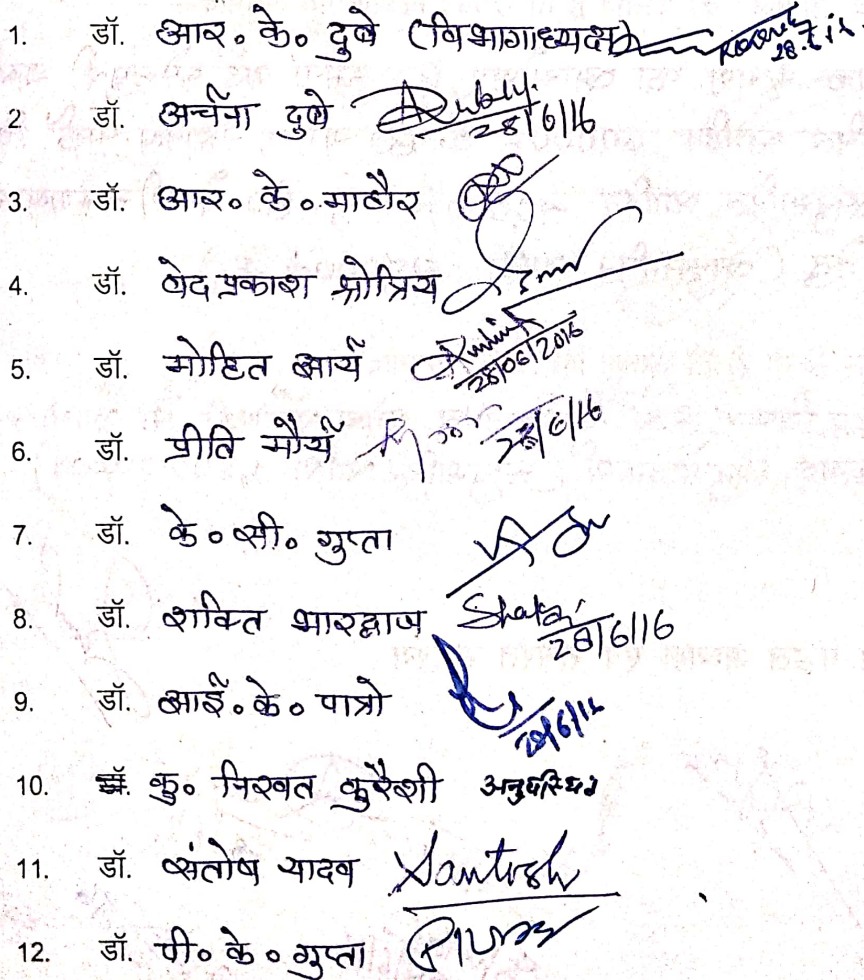 1. डॉ. आर० के० दुबे (विभागाध्यक्ष)
2 डॉ. अर्चना दुबे 28/6/16
3. डॉ. आर० के० माठौर
4. डॉ. वेद प्रकाश श्रोत्रिय
5. डॉ. मोहित आर्य 28/06/2016
6. डॉ. प्रीति मौर्य 28/6/16
7. डॉ. के० सी० गुप्ता
8. डॉ. शक्ति भारद्वाज 28/6/16
9. डॉ. आई० के० पात्रो
10. कु० निखत कुरैशी अनुपस्थित
11. डॉ. संतोष यादव Santosh
12. डॉ. पी० के० गुप्ता